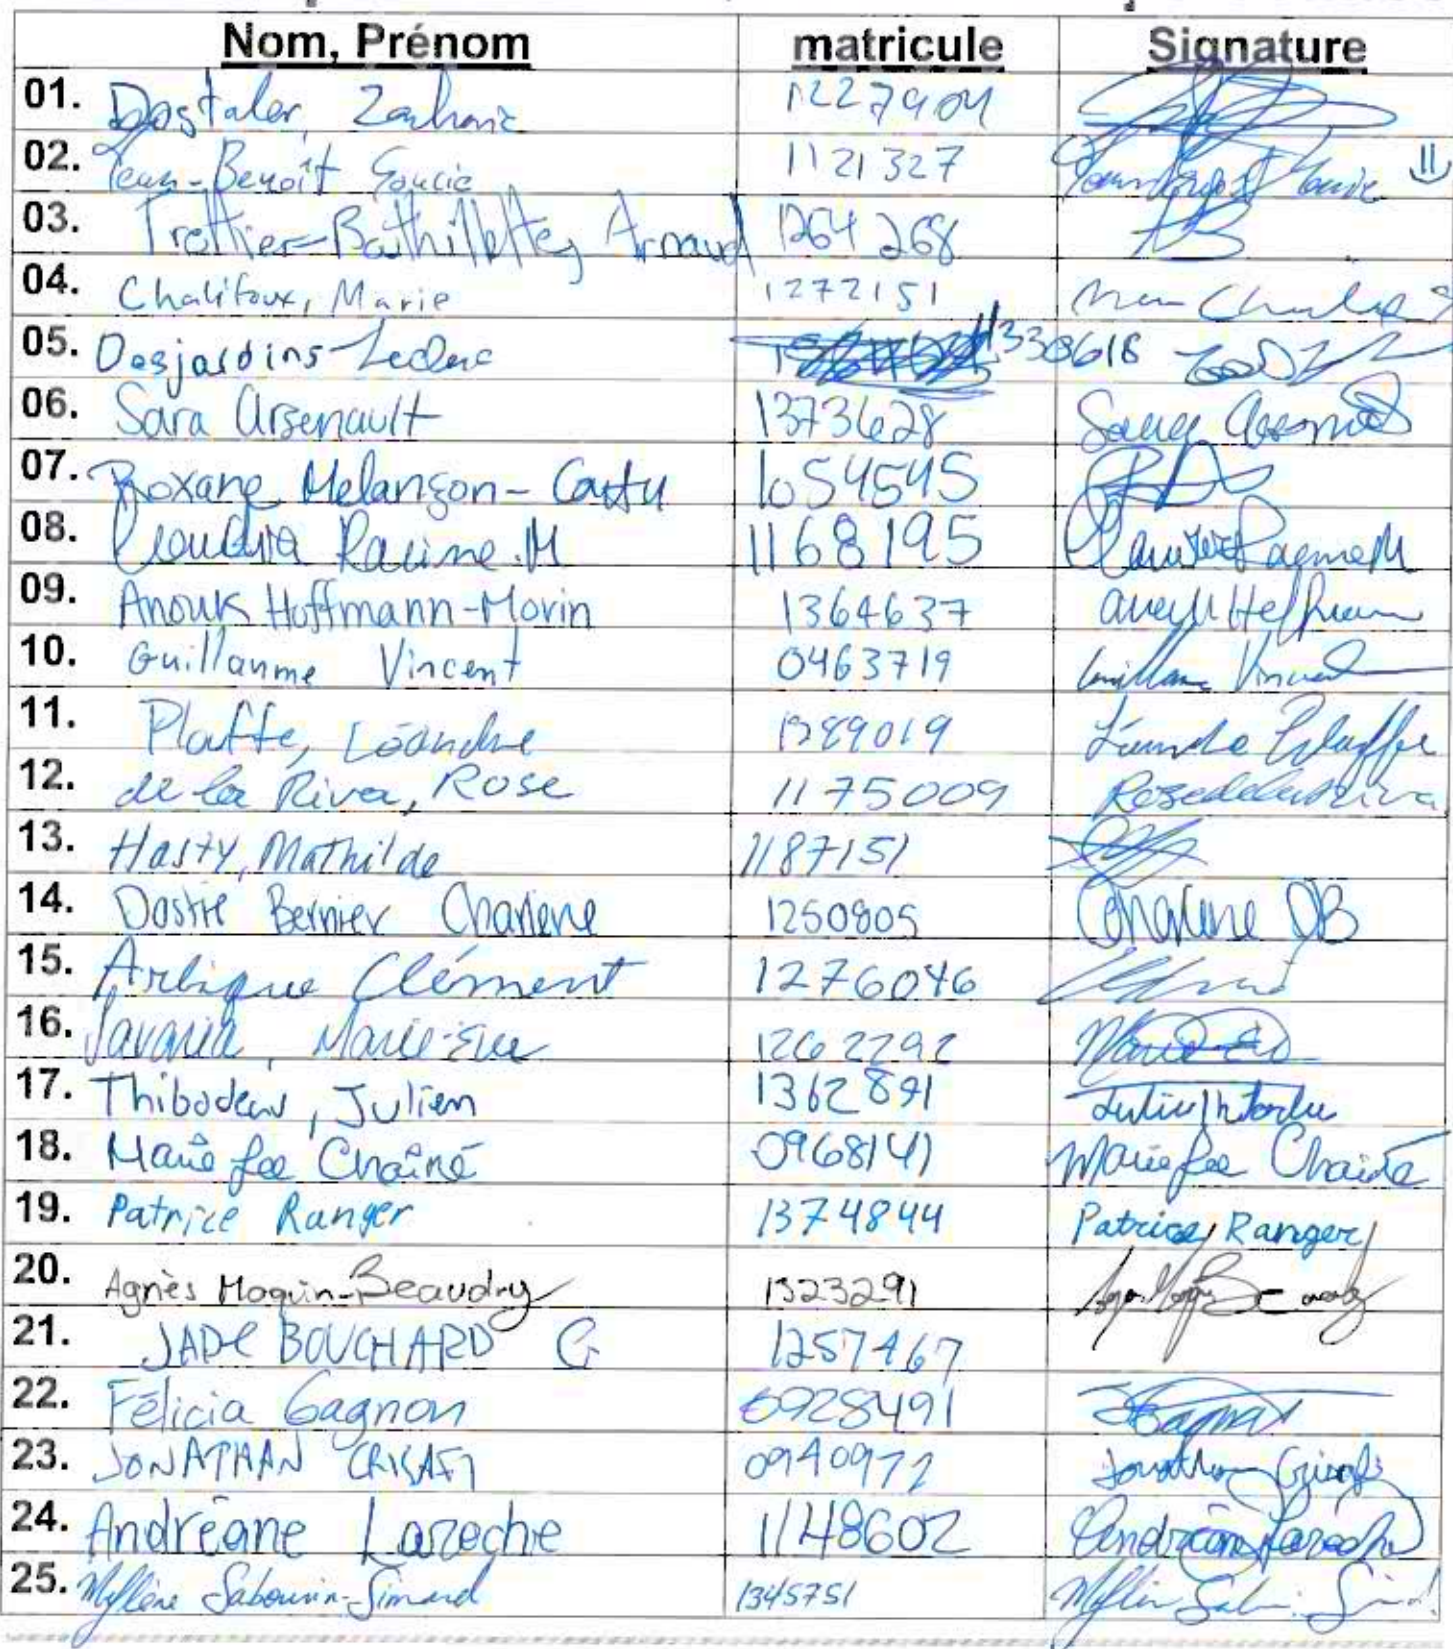 Nom, Prénom matricule Signature
01. Dostaler, Zacharie 1227904
02. Jean-Benoît Soucie 1121327
03. Trottier- , Arnaud 1264268
04. Chalifoux, Marie 1272151
05. Desjardins-Leclerc 1330618
06. Sara Arsenault 1373628
07. Roxane Melançon- 1054545
08. Claudia Racine.M 1168195
09. Anouk Hoffmann-Morin 1364637
10. Guillaume Vincent 0463719 Guillaume Vincent
11. Plaffe, Léandre 1289019
12. de la Riva, Rose 1175009 Rosedelariva
13. Hasty, Mathilde 1187151
14. Dostie Bernier Charlene 1250805 Charlene DB
15. Clément 1276046
16. Savaria, Marie-Eve 1262292
17. Thibodeau, Julien 1362891
18. Marie fee Chaîné 0968141 Marie fee Chaîné
19. Patrice Ranger 1374844 Patrice Ranger
20. Agnès Moquin-Beaudry 1323291
21. JADE BOUCHARD G 1257467
22. Félicia Gagnon 0928491
23. JONATHAN CRISAFI 0940972 Jonathan Crisafi
24. Andréane Lareche 1148602
25. Mylène Sabourin-Simard 1345751